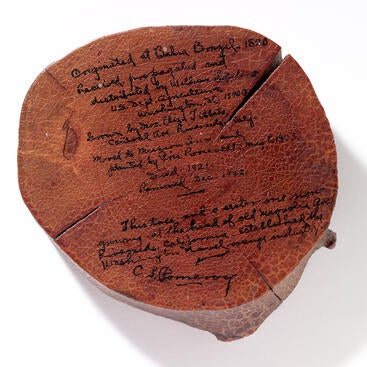 Originated at Bahia Brazil, 1820
Received, propagated and
distributed by William
U.S. Dept. Agriculture
Washington, D.C. 1870.
Grown by Mrs. Eliza Tibbets
Central Ave. Riverside, Calif.
Moved to Mission Inn and
planted by Pres. Roosevelt May 8, 1903.
Died 1921
Removed Dec. 1922
This tree and a sister one now
growing at the head of old Magnolia Ave.
Riverside, California established the
Washington Navel orange industry
C. S. Pomeroy